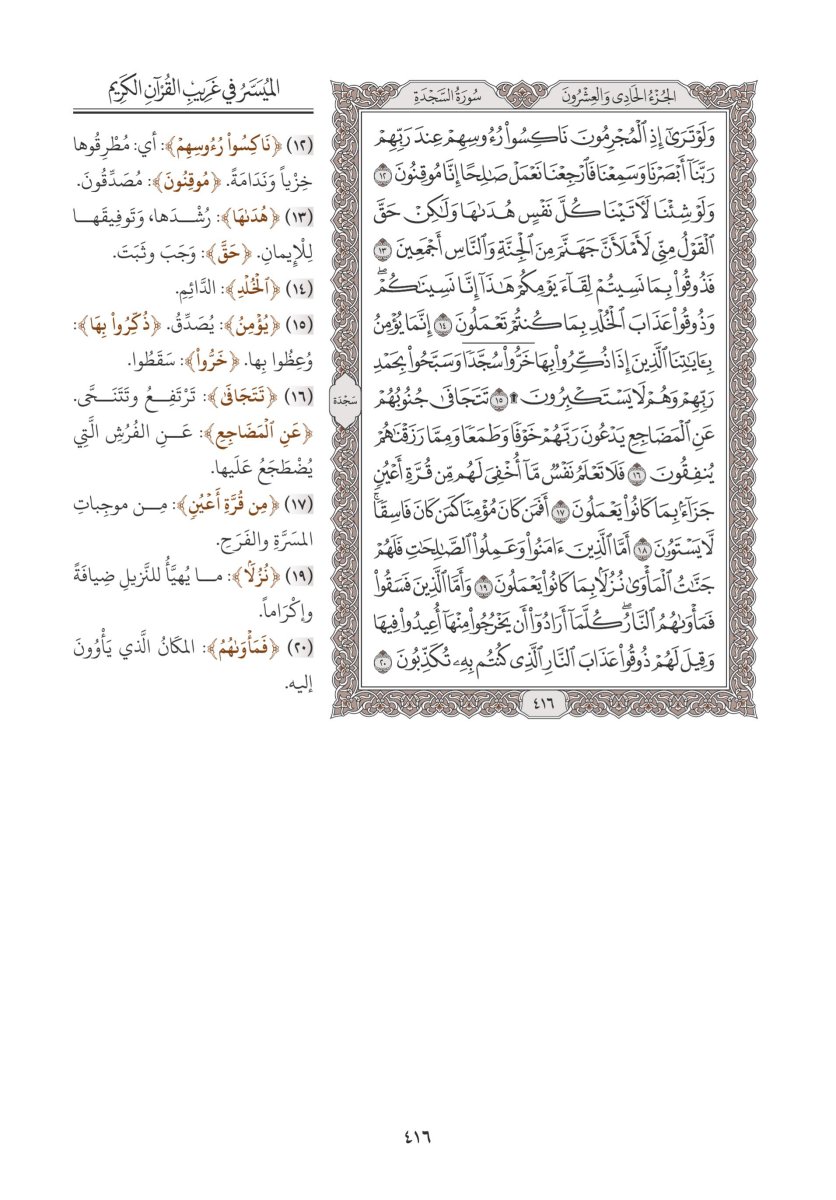 الجُزْءُ الحَادِي وَالعِشْرُونَ
سُورَةُ السَّجْدَةِ
وَلَوْ تَرَىٰٓ إِذِ ٱلْمُجْرِمُونَ نَاكِسُواْ رُءُوسِهِمْ عِندَ رَبِّهِمْ
رَبَّنَآ أَبْصَرْنَا وَسَمِعْنَا فَٱرْجِعْنَا نَعْمَلْ صَٰلِحًا إِنَّا مُوقِنُونَ ١٢
وَلَوْ شِئْنَا لَأٓتَيْنَا كُلَّ نَفْسٍ هُدَىٰهَا وَلَٰكِنْ حَقَّ
ٱلْقَوْلُ مِنِّي لَأَمْلَأَنَّ جَهَنَّمَ مِنَ ٱلْجِنَّةِ وَٱلنَّاسِ أَجْمَعِينَ ١٣
فَذُوقُواْ بِمَا نَسِيتُمْ لِقَآءَ يَوْمِكُمْ هَٰذَآ إِنَّا نَسِينَٰكُمْۖ
وَذُوقُواْ عَذَابَ ٱلْخُلْدِ بِمَا كُنتُمْ تَعْمَلُونَ ١٤ إِنَّمَا يُؤْمِنُ
بِـَٔايَٰتِنَا ٱلَّذِينَ إِذَا ذُكِّرُواْ بِهَا خَرُّواْ سُجَّدًا وَسَبَّحُواْ بِحَمْدِ
رَبِّهِمْ وَهُمْ لَا يَسْتَكْبِرُونَ ۩ ١٥ تَتَجَافَىٰ جُنُوبُهُمْ
عَنِ ٱلْمَضَاجِعِ يَدْعُونَ رَبَّهُمْ خَوْفًا وَطَمَعًا وَمِمَّا رَزَقْنَٰهُمْ
يُنفِقُونَ ١٦ فَلَا تَعْلَمُ نَفْسٌ مَّآ أُخْفِيَ لَهُم مِّن قُرَّةِ أَعْيُنٍ
جَزَآءَۢ بِمَا كَانُواْ يَعْمَلُونَ ١٧ أَفَمَن كَانَ مُؤْمِنًا كَمَن كَانَ فَاسِقًاۚ
لَّا يَسْتَوُۥنَ ١٨ أَمَّا ٱلَّذِينَ ءَامَنُواْ وَعَمِلُواْ ٱلصَّٰلِحَٰتِ فَلَهُمْ
جَنَّٰتُ ٱلْمَأْوَىٰ نُزُلًۢا بِمَا كَانُواْ يَعْمَلُونَ ١٩ وَأَمَّا ٱلَّذِينَ فَسَقُواْ
فَمَأْوَىٰهُمُ ٱلنَّارُۖ كُلَّمَآ أَرَادُوٓاْ أَن يَخْرُجُواْ مِنْهَآ أُعِيدُواْ فِيهَا
وَقِيلَ لَهُمْ ذُوقُواْ عَذَابَ ٱلنَّارِ ٱلَّذِي كُنتُم بِهِۦ تُكَذِّبُونَ ٢٠
سَجْدَة
٤١٦
المُيَسَّرُ في غَرِيبِ القُرْآنِ الكَرِيمِ
(١٢) ﴿نَاكِسُواْ رُءُوسِهِمْ﴾: أي: مُطْرِقُوها
خِزْياً وَنَدَامَةً. ﴿مُوقِنُونَ﴾: مُصَدِّقُونَ.
(١٣) ﴿هُدَىٰهَا﴾: رُشْدَها، وَتَوفِيقَهـا
لِلْإِيمانِ. ﴿حَقَّ﴾: وَجَبَ وثَبَتَ.
(١٤) ﴿ٱلْخُلْدِ﴾: الدَّائِمِ.
(١٥) ﴿يُؤْمِنُ﴾: يُصَدِّقُ. ﴿ذُكِّرُواْ بِهَا﴾:
وُعِظُوا بِها. ﴿خَرُّواْ﴾: سَقَطُوا.
(١٦) ﴿تَتَجَافَىٰ﴾: تَرْتَفِعُ وتَتَنَحَّى.
﴿عَنِ ٱلْمَضَاجِعِ﴾: عَـنِ الفُرُشِ الَّتِي
يُضْطَجَعُ عَلَيها.
(١٧) ﴿مِن قُرَّةِ أَعْيُنٍ﴾: مِـن موجِباتِ
المسَرَّةِ والفَرَحِ.
(١٩) ﴿نُزُلًا﴾: مـا يُهيَّأُ للنَّزِيلِ ضِيافَةً
وإِكْرَاماً.
(٢٠) ﴿فَمَأْوَىٰهُمُ﴾: المكَانُ الَّذي يَأْوُونَ
إليه.
٤١٦